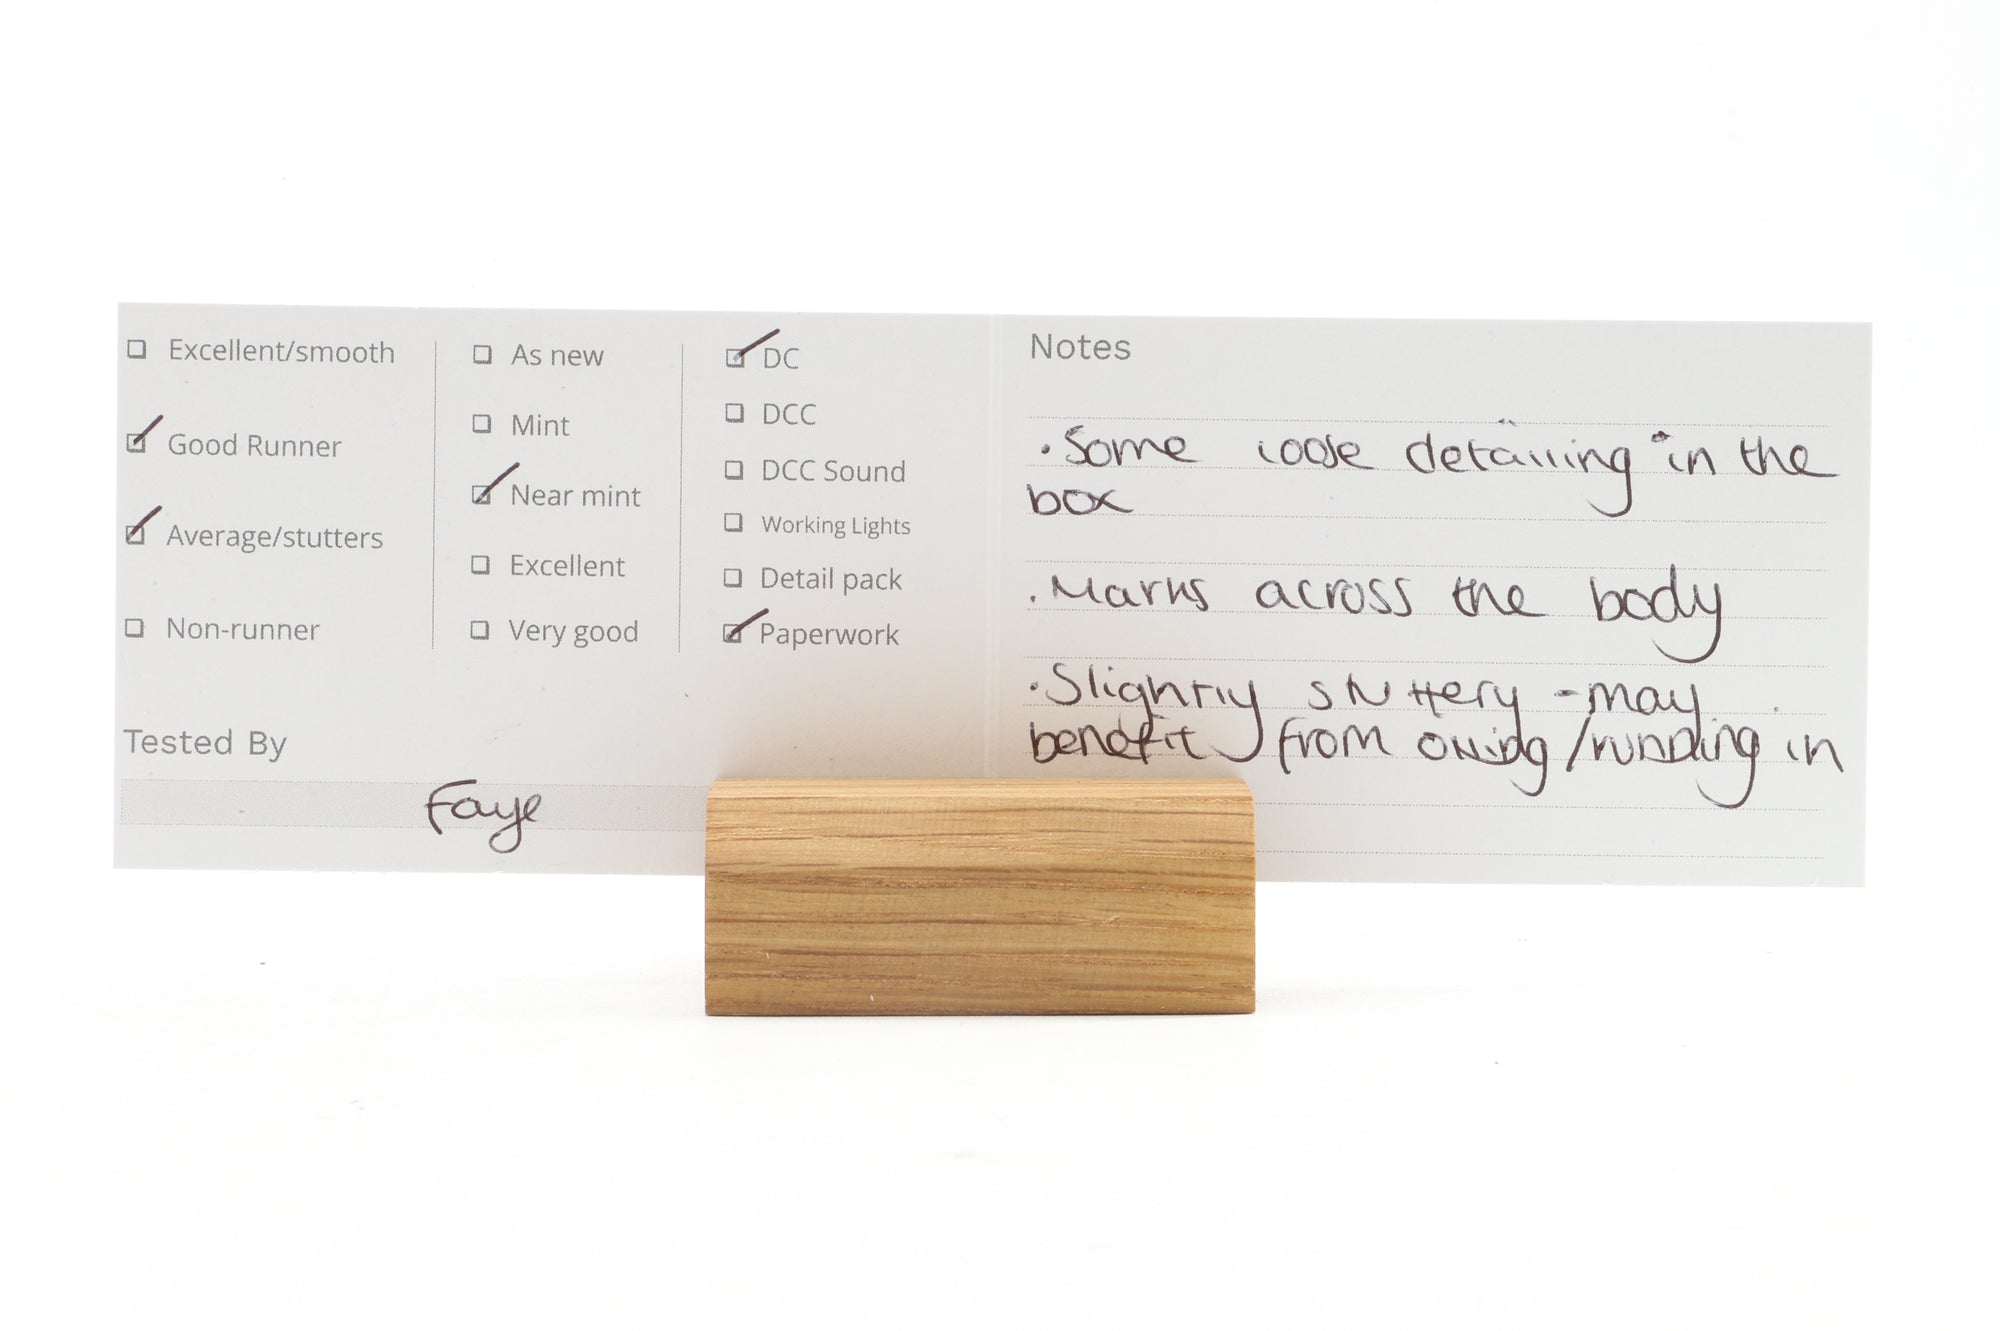 Excellent/smooth
Good Runner
Average/stutters
Non-runner
As new
Mint
Near mint
Excellent
Very good
DC
DCC
DCC Sound
Working Lights
Detail pack
Paperwork
Tested By
Faye
Notes
· Some loose detailing in the
box
· Marks across the body
· Slightly stuttery - may
benefit from oiling/running in